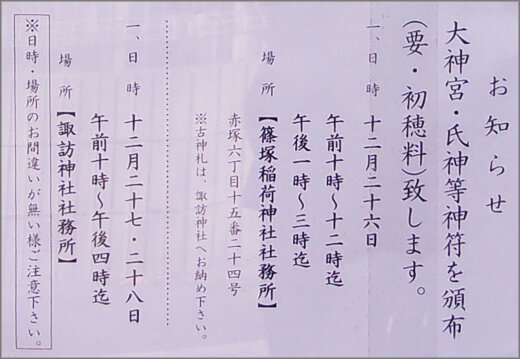 お知らせ
大神宮・氏神等神符を頒布
(要・初穂料)致します。
一、日時 十二月二十六日
午前十時～十二時迄
午後一時～三時迄
場所 【篠塚稲荷神社社務所】
赤塚六丁目十五番二十四号
※古神札は、諏訪神社へお納め下さい。
一、日時 十二月二十七・二十八日
午前十時～午後四時迄
場所 【諏訪神社社務所】
※日時・場所のお間違いが無い様ご注意下さい。